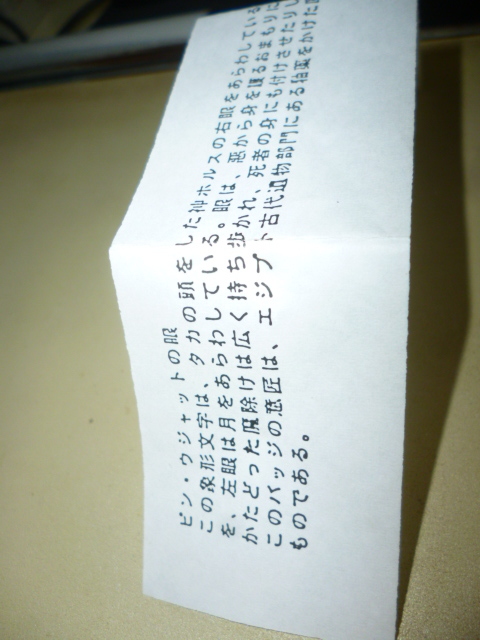 ピン・ウジャットの眼
この象形文字は、タカの頭をした神ホルスの右眼をあらわしている
を、左眼は月をあらわしている。眼は、悪から身を護るおまもりに
かたどった魔除けは広く持ち歩かれ、死者の身にも付けさせたりし
このバッジの意匠は、エジプト古代遺物部門にある釉薬をかけた
ものである。